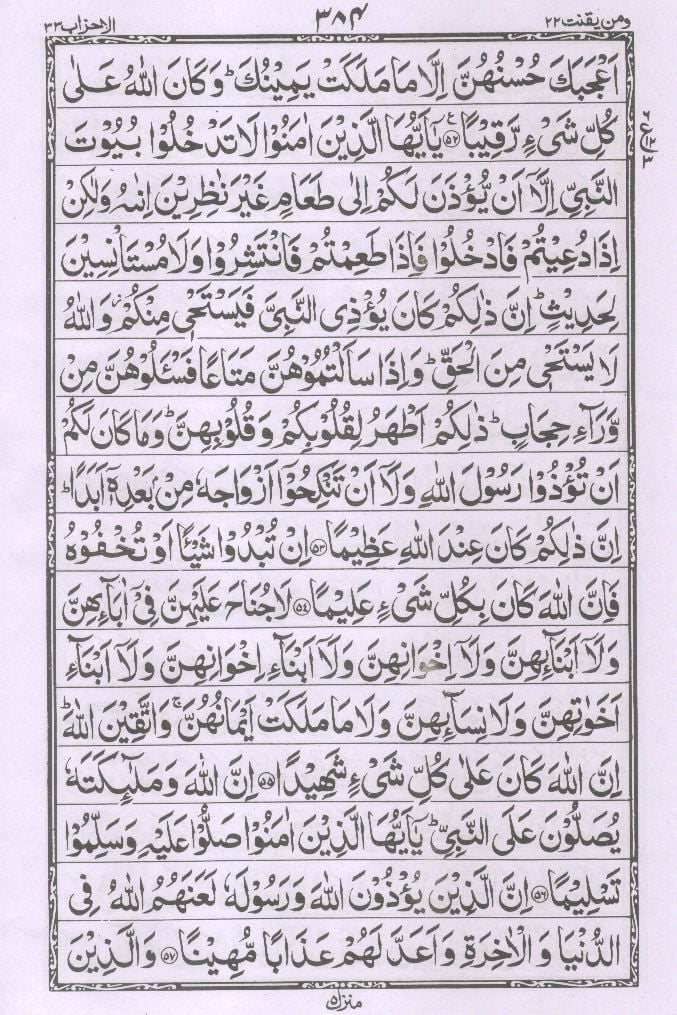 ومن يقنت ٢٢ ٣٨٤ الاحزاب ٣٣
اَعْجَبَكَ حُسْنُهُنَّ اِلَّا مَا مَلَكَتْ يَمِيْنُكَ ؕ وَكَانَ اللّٰهُ عَلٰى
كُلِّ شَىْءٍ رَّقِيْبًا ۟ع ﴿٥٢﴾ يٰۤاَيُّهَا الَّذِيْنَ اٰمَنُوْا لَا تَدْخُلُوْا بُيُوْتَ
النَّبِىِّ اِلَّاۤ اَنْ يُّؤْذَنَ لَكُمْ اِلٰى طَعَامٍ غَيْرَ نٰظِرِيْنَ اِنٰىهُ وَلٰكِنْ
اِذَا دُعِيْتُمْ فَادْخُلُوْا فَاِذَا طَعِمْتُمْ فَانْتَشِرُوْا وَلَا مُسْتَاْنِسِيْنَ
لِحَدِيْثٍ ؕ اِنَّ ذٰلِكُمْ كَانَ يُؤْذِى النَّبِىَّ فَيَسْتَحْىٖ مِنْكُمْ ز وَاللّٰهُ
لَا يَسْتَحْىٖ مِنَ الْحَقِّ ؕ وَاِذَا سَاَلْتُمُوْهُنَّ مَتَاعًا فَسْـَٔلُوْهُنَّ مِنْ
وَّرَآءِ حِجَابٍ ؕ ذٰلِكُمْ اَطْهَرُ لِقُلُوْبِكُمْ وَقُلُوْبِهِنَّ ؕ وَمَا كَانَ لَكُمْ
اَنْ تُؤْذُوْا رَسُوْلَ اللّٰهِ وَلَاۤ اَنْ تَنْكِحُوْۤا اَزْوَاجَهٗ مِنْۢ بَعْدِهٖۤ اَبَدًا ؕ
اِنَّ ذٰلِكُمْ كَانَ عِنْدَ اللّٰهِ عَظِيْمًا ﴿٥٣﴾ اِنْ تُبْدُوْا شَيْـًٔا اَوْ تُخْفُوْهُ
فَاِنَّ اللّٰهَ كَانَ بِكُلِّ شَىْءٍ عَلِيْمًا ﴿٥٤﴾ لَا جُنَاحَ عَلَيْهِنَّ فِىْۤ اٰبَآئِهِنَّ
وَلَاۤ اَبْنَآئِهِنَّ وَلَاۤ اِخْوَانِهِنَّ وَلَاۤ اَبْنَآءِ اِخْوَانِهِنَّ وَلَاۤ اَبْنَآءِ
اَخَوٰتِهِنَّ وَلَا نِسَآئِهِنَّ وَلَا مَا مَلَكَتْ اَيْمَانُهُنَّ ۚ وَاتَّقِيْنَ اللّٰهَ ؕ
اِنَّ اللّٰهَ كَانَ عَلٰى كُلِّ شَىْءٍ شَهِيْدًا ﴿٥٥﴾ اِنَّ اللّٰهَ وَمَلٰٓئِكَتَهٗ
يُصَلُّوْنَ عَلَى النَّبِىِّ ؕ يٰۤاَيُّهَا الَّذِيْنَ اٰمَنُوْا صَلُّوْا عَلَيْهِ وَسَلِّمُوْا
تَسْلِيْمًا ﴿٥٦﴾ اِنَّ الَّذِيْنَ يُؤْذُوْنَ اللّٰهَ وَرَسُوْلَهٗ لَعَنَهُمُ اللّٰهُ فِى
الدُّنْيَا وَالْاٰخِرَةِ وَاَعَدَّ لَهُمْ عَذَابًا مُّهِيْنًا ﴿٥٧﴾ وَالَّذِيْنَ
منزل ٥